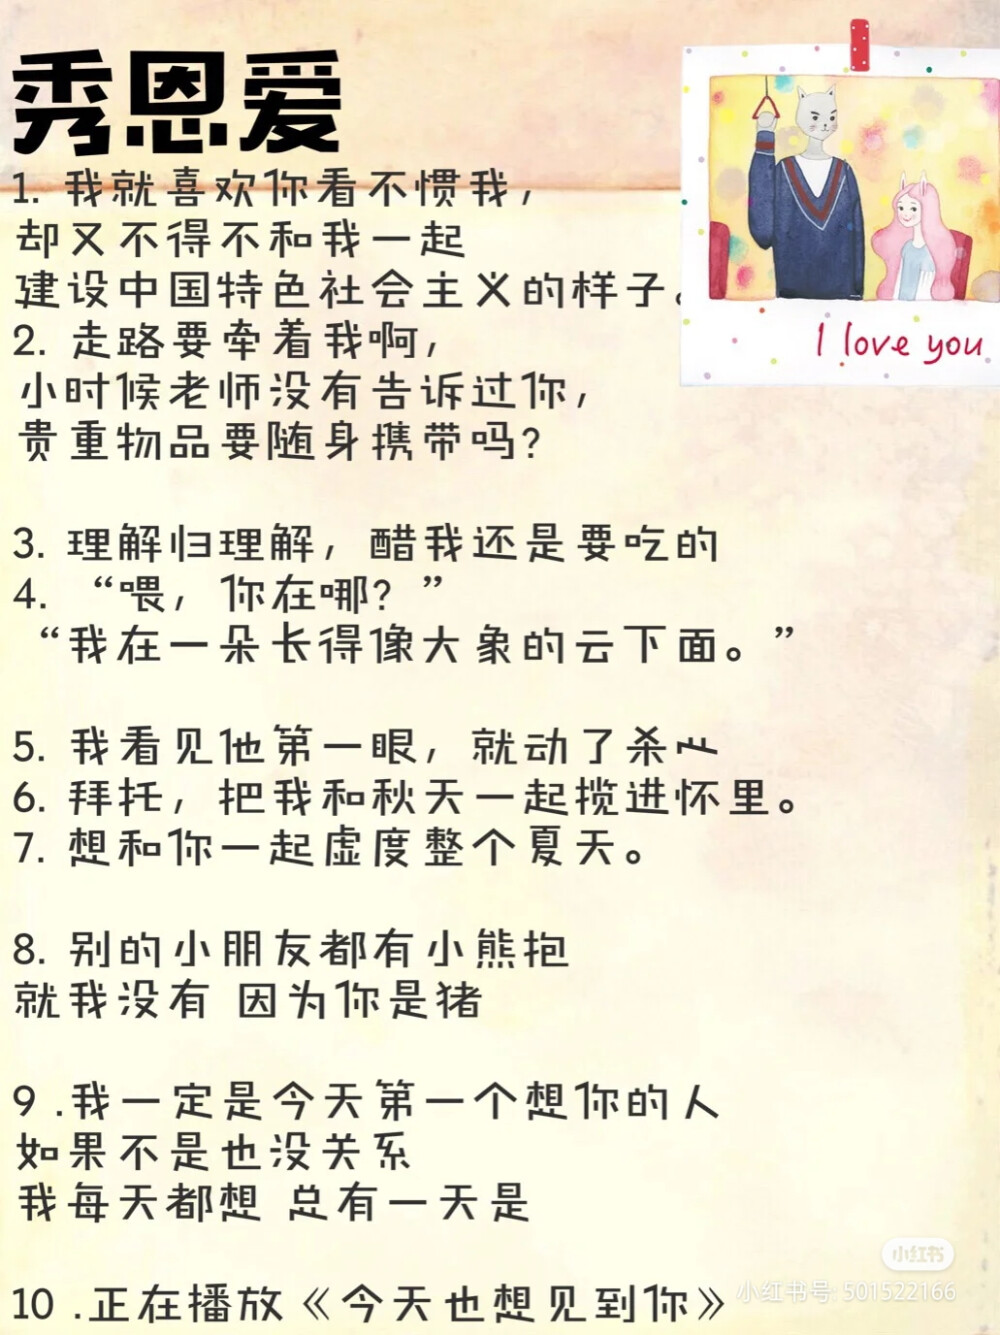 秀恩爱
1. 我就喜欢你看不惯我，
却又不得不和我一起
建设中国特色社会主义的样子。
I love you
2. 走路要牵着我啊，
小时候老师没有告诉过你，
贵重物品要随身携带吗？
3. 理解归理解，醋我还是要吃的
4. “喂，你在哪？”
“我在一朵长得像大象的云下面。”
5. 我看见他第一眼，就动了杀
6. 拜托，把我和秋天一起揽进怀里。
7. 想和你一起虚度整个夏天。
8. 别的小朋友都有小熊抱
就我没有 因为你是猪
9 .我一定是今天第一个想你的人
如果不是也没关系
我每天都想 总有一天是
10 .正在播放《今天也想见到你》
小红书
小红书号: 501522166